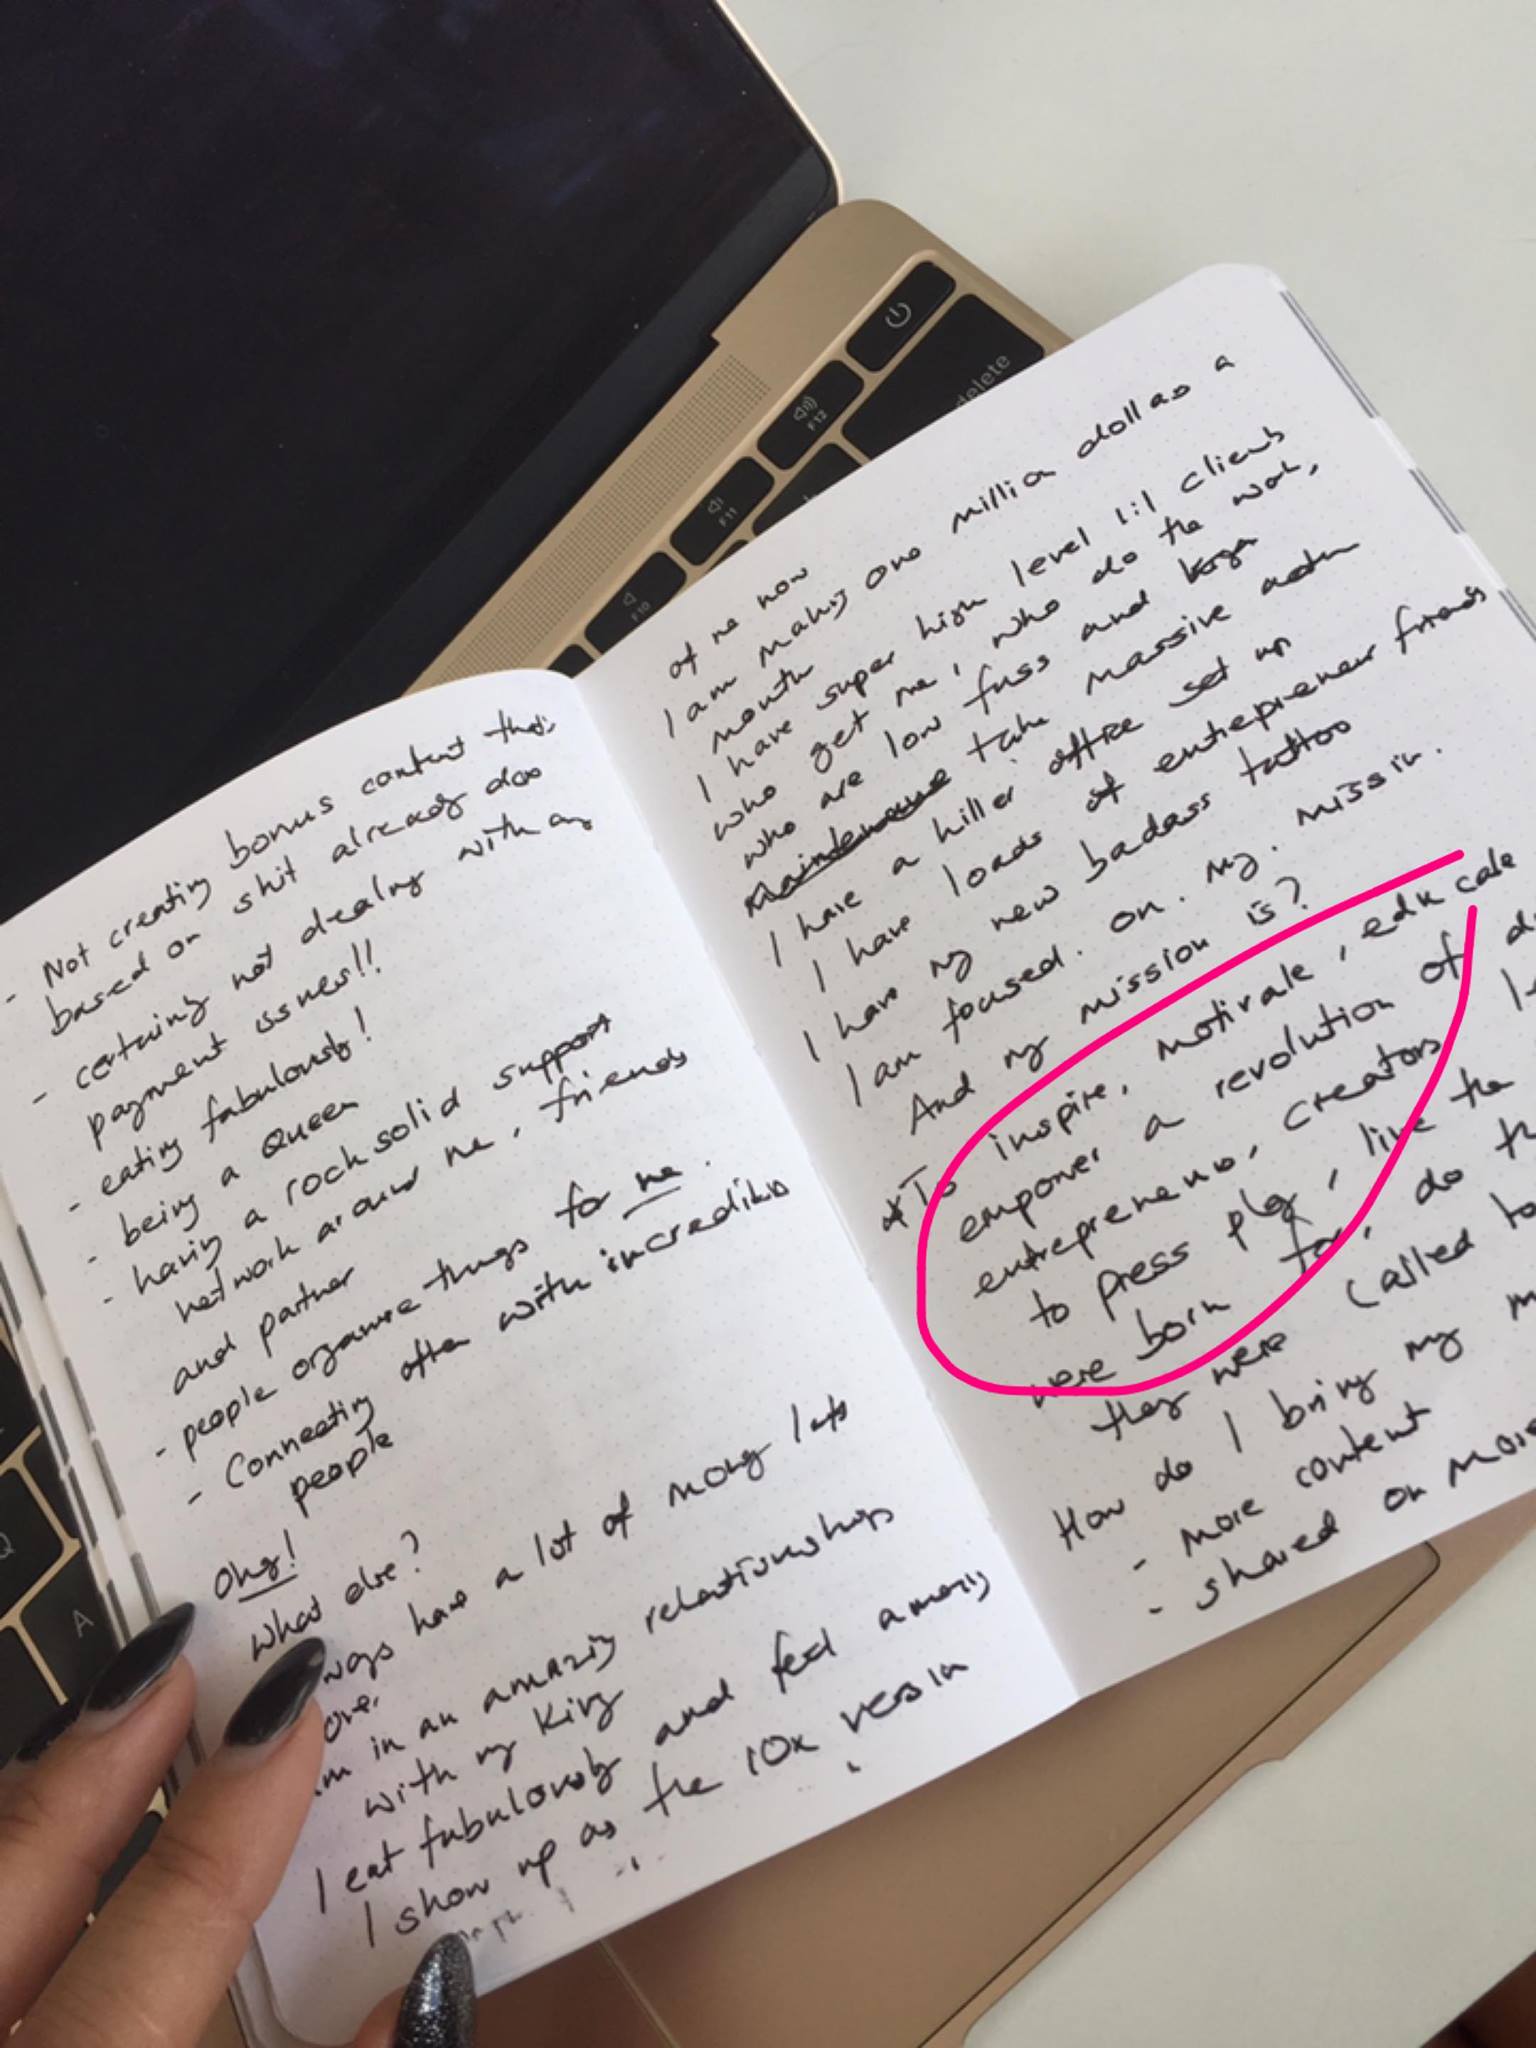 - Not creating bonus content thats
based on shit already doo
- certainly not dealing with any
payment issues!!
- eating fabulously!
- being a Queen
- having a rock solid support
network around me, friends
and partner
- people organise things for me.
- Connecting often with incredible
people
Ohg!
What else?
ways have a lot of money lots
over
I'm in an amazing relationship
with my King
I eat fabulously and feel amazing
I show up as the 10x version
of me now
I am making one million dollars a
month
I have super high level clients
who get me, who do the work,
who are low fuss and
maintenance take massive action
I have a killer office set up
I have loads of entrepreneur friends
I have my new badass tattoo
I am focused. on. my. mission.
And my mission is?
* To inspire, motivate, educate
empower a revolution of
entrepreneurs, creators
to press play, live the
were born for, do
they were called to
How do I bring my
- more content
- shared on more
delete
F12
F11
F10
Q
A